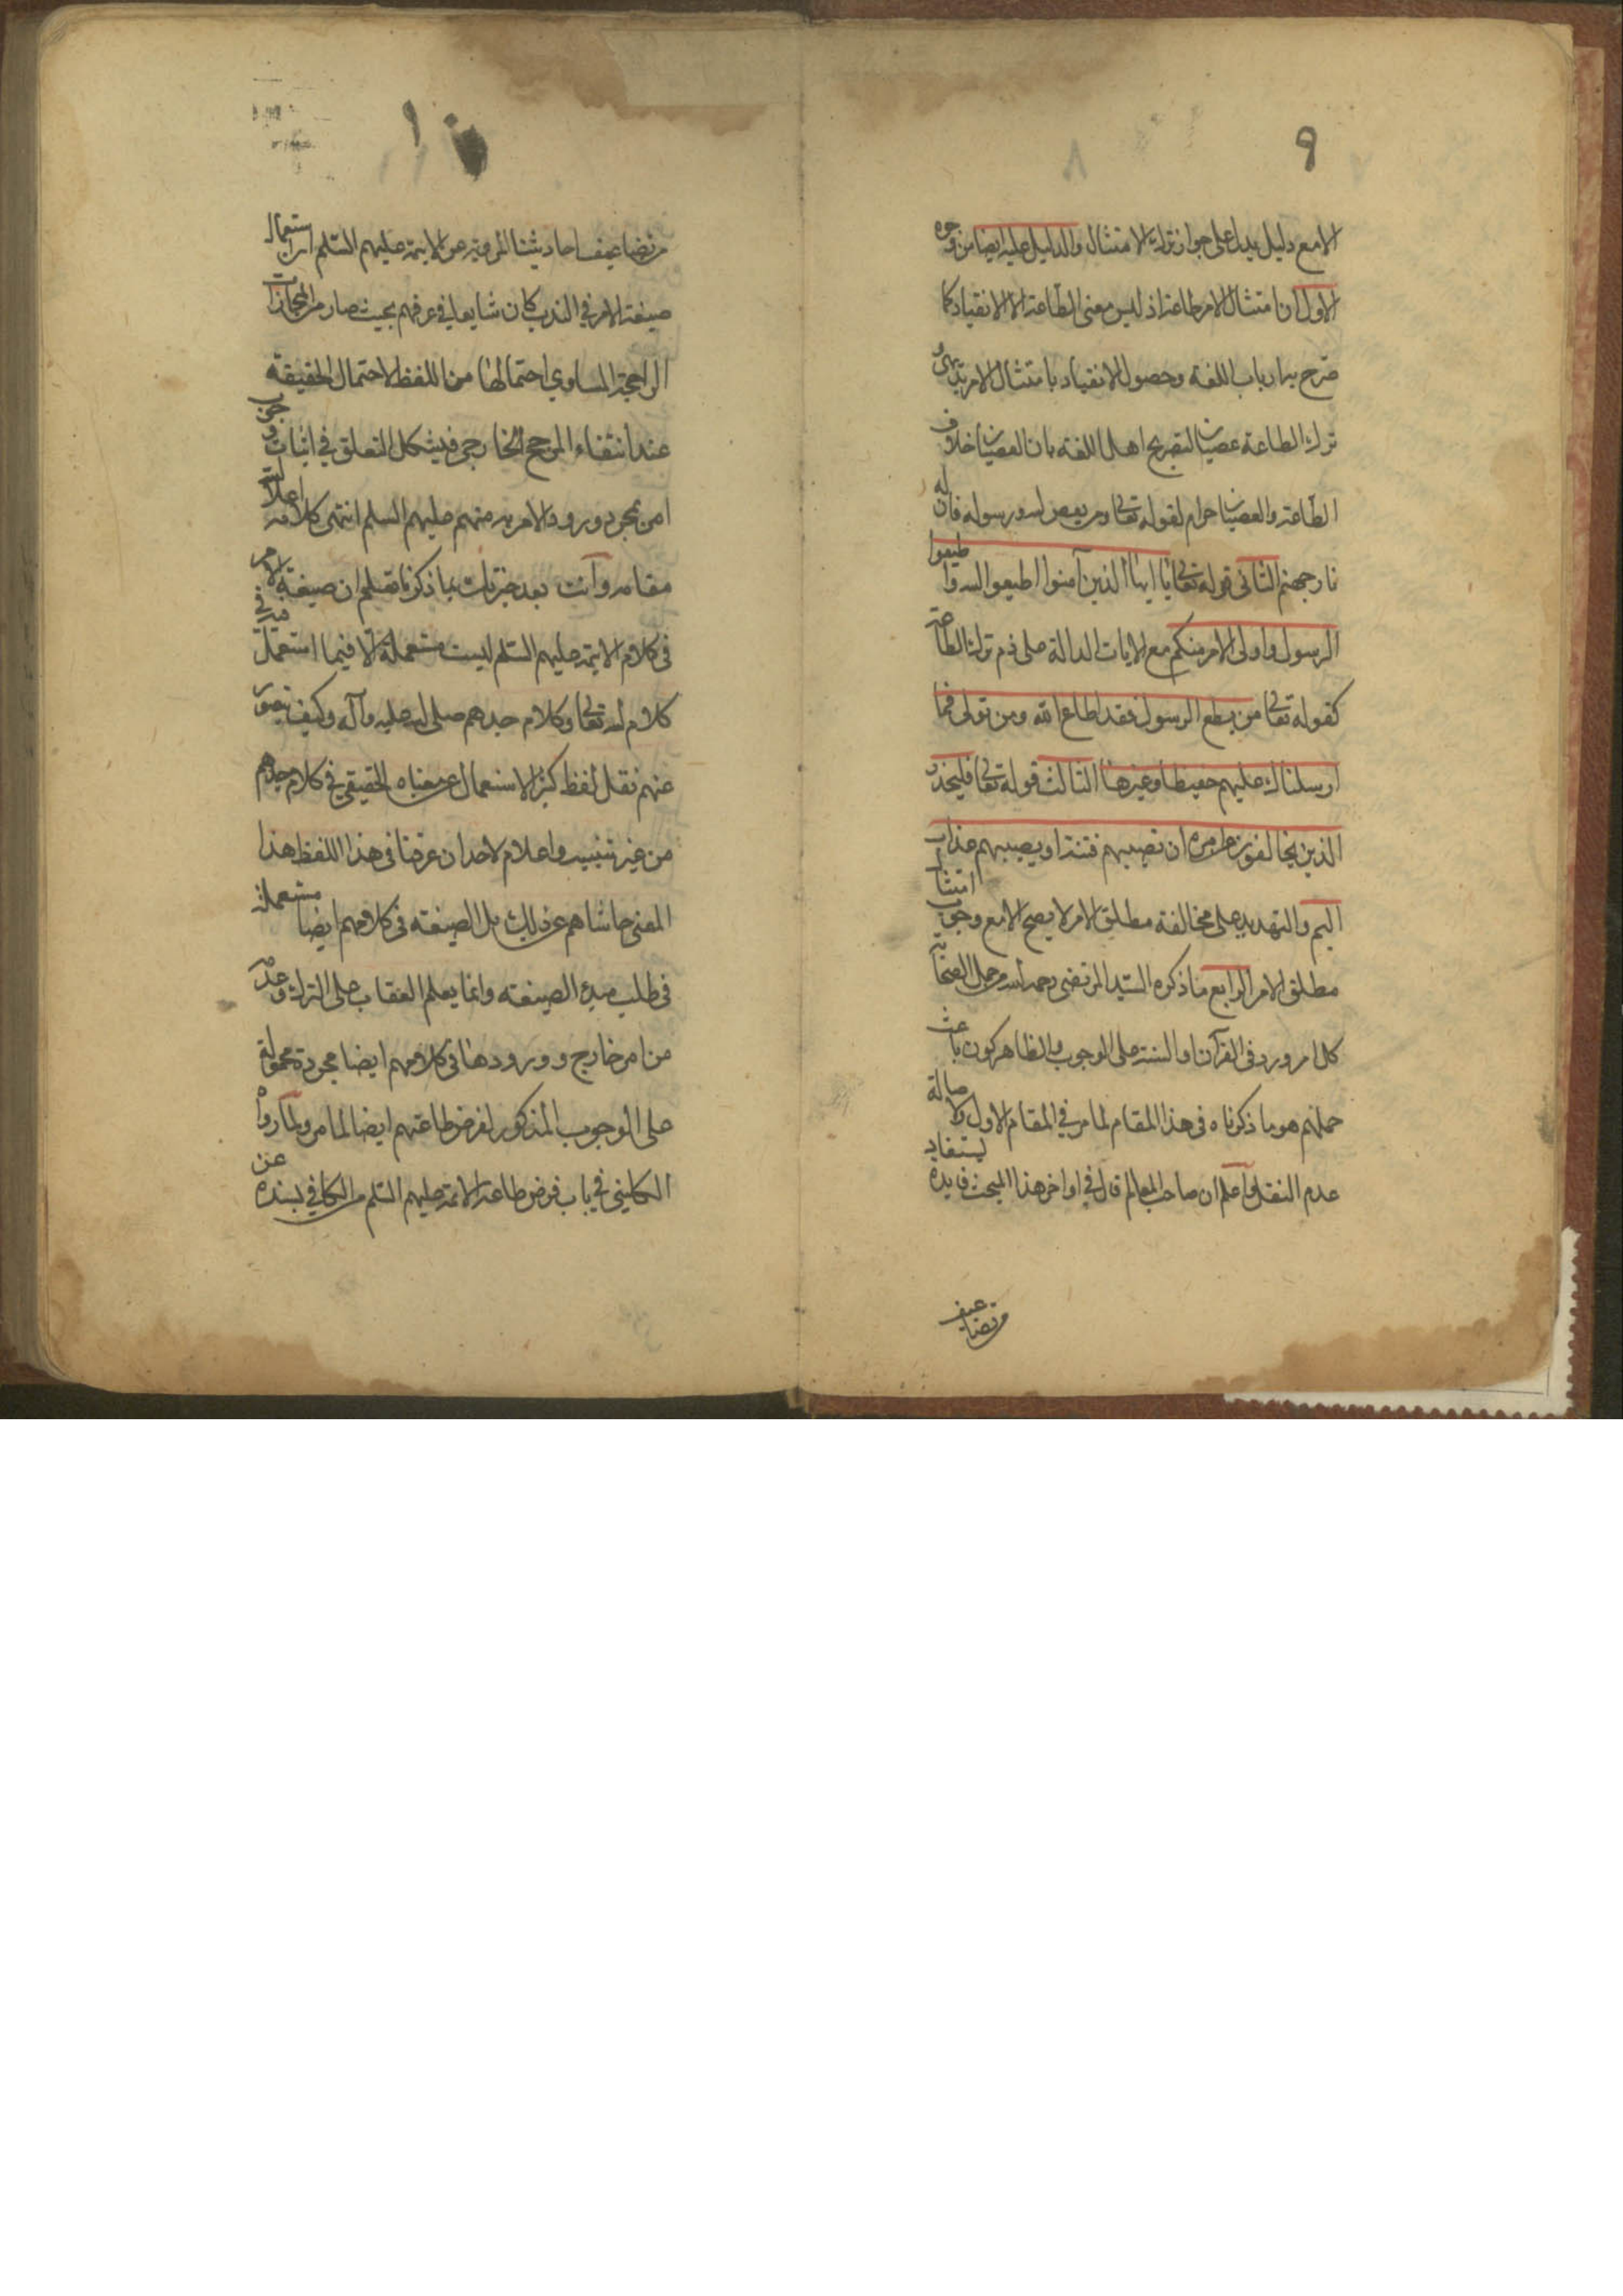 ٩
الا مع دليل يدل على جواز ترك الامتثال والدليل عليه ايضا من وجوه
الاول ان امتثال الامر طاعة اذ ليس معنى الطاعة الا الانقياد كما
صرح به ارباب اللغة وحصول الانقياد بامتثال الامر بديهي و
ترك الطاعة عصيان لتصريح اهل اللغة بان العصيان خلاف
الطاعة والعصيان حرام لقوله تعالى ومن يعص الله ورسوله فان له
نار جهنم الثاني قوله تعالى يا ايها الذين آمنوا اطيعوا الله واطيعوا
الرسول واولى الامر منكم مع الايات الدالة على ذم ترك الطاعة
كقوله تعالى من يطع الرسول فقد اطاع الله ومن تولى فما
ارسلناك عليهم حفيظا وغيرها الثالث قوله تعالى فليحذر
الذين يخالفون عن امره ان تصيبهم فتنة او يصيبهم عذاب
اليم والتهديد على مخالفة مطلق الامر لا يصح الا مع وجوب امتثال
مطلق الامر الرابع ما ذكره السيد المرتضى رحمه الله من حمل الصحابة
كل امر ورد في القرآن او السنة على الوجوب والظاهر كون باعث
حملهم هو ما ذكرناه في هذا المقام لما مر في المقام الاول ولاصالة
عدم النقل واعلم ان صاحب المعالم قال في اواخر هذا المبحث فايدة يستفاد
من تضاعيف
١٠
من تضاعيف احاديثنا المروية عن الائمة عليهم السلم ان استعمال
صيغة الامر في الندب كان شايعا في عرفهم بحيث صار من المجازات
الراجحة المساوي احتمالها من اللفظ لاحتمال الحقيقة
عند انتفاء المرجح الخارجي فيشكل التعلق في اثبات وجوب
امر بمجرد ورود الامر به منهم عليهم السلم انتهى كلامه اعلا الله
مقامه وانت بعد خبرتك بما ذكرنا تعلم ان صيغة الامر
في كلام الائمة عليهم السلم ليست مستعملة الا فيما استعمل فيه في
كلام الله تعالى وكلام جدهم صلى الله عليه وآله وكيف يتصور
عنهم نقل لفظ كثير الاستعمال عن معناه الحقيقي في كلام جدهم
من غير تنبيه واعلام لاحد ان عرفنا في هذا اللفظ هذا
المعنى حاشاهم عن ذلك بل الصيغة في كلامهم ايضا مستعملة
في طلب مبدء الصيغة وانما يعلم العقاب على الترك وعدمه
من امر خارج وورودها في كلامهم ايضا مجردة محمولة
على الوجوب المذكور لفرض طاعتهم ايضا لما مر ولما رواه
الكليني في باب فرض طاعة الائمة عليهم السلم من الكافي بسنده عن